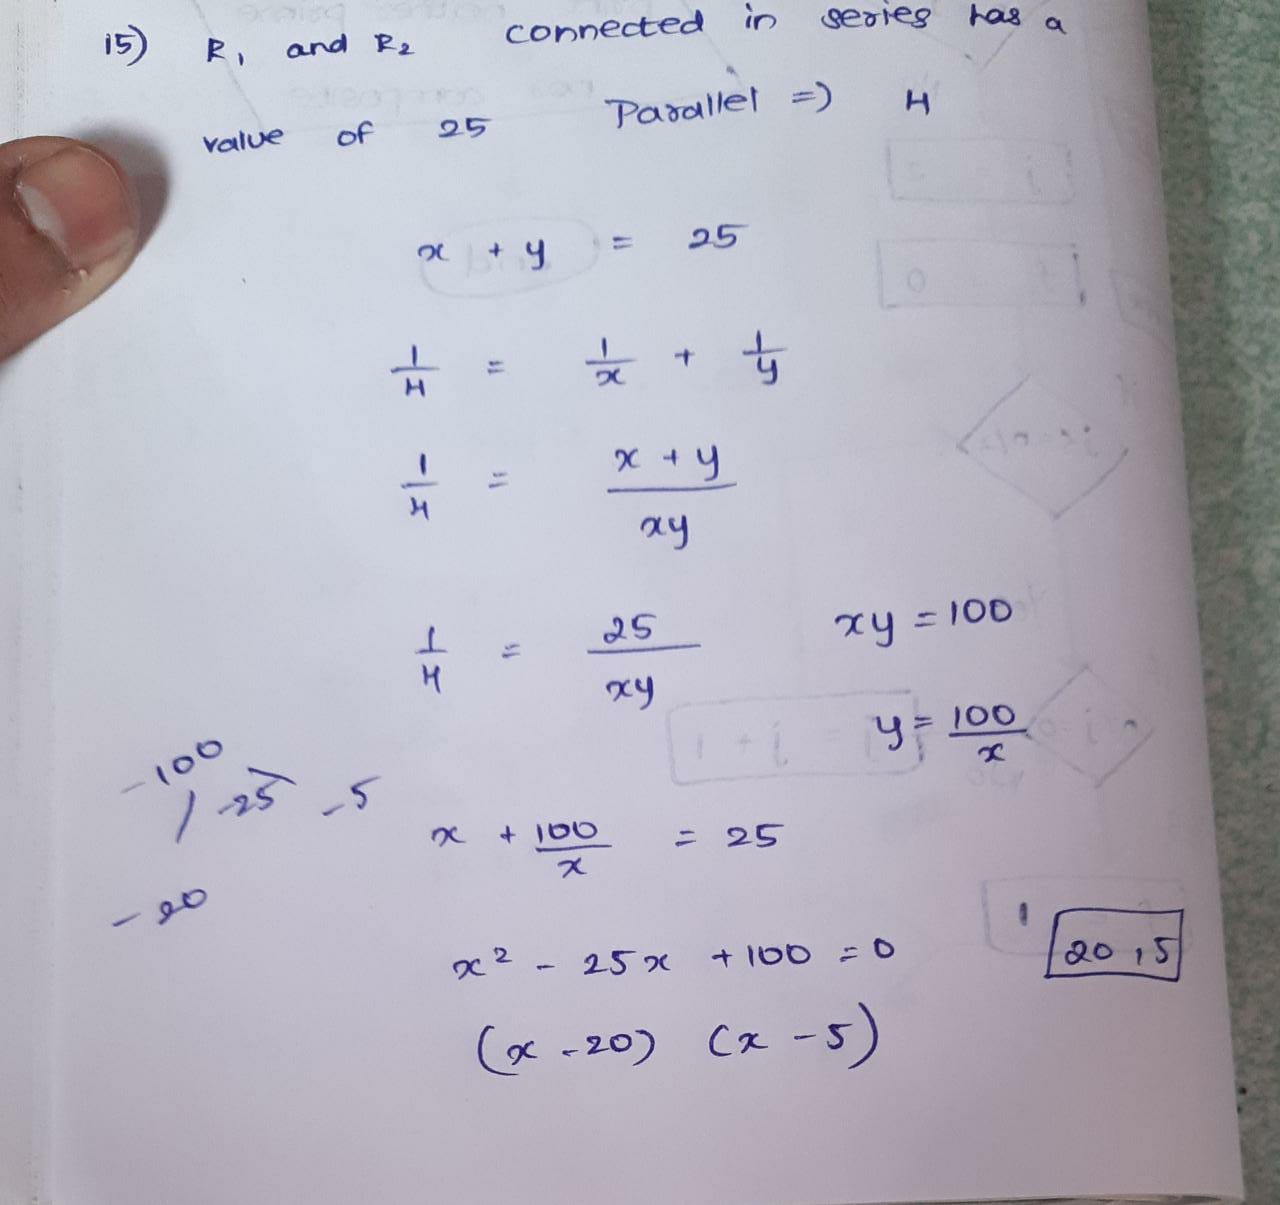 15) R₁ and R₂ connected in series has a
value of 25 Parallel => 4
x + y = 25
1/4 = 1/x + 1/y
1/4 = x + y / xy
1/4 = 25 / xy
xy = 100
y = 100 / x
-100
-25 -5
-20
x + 100/x = 25
x² - 25x + 100 = 0
(x - 20) (x - 5)
20, 5